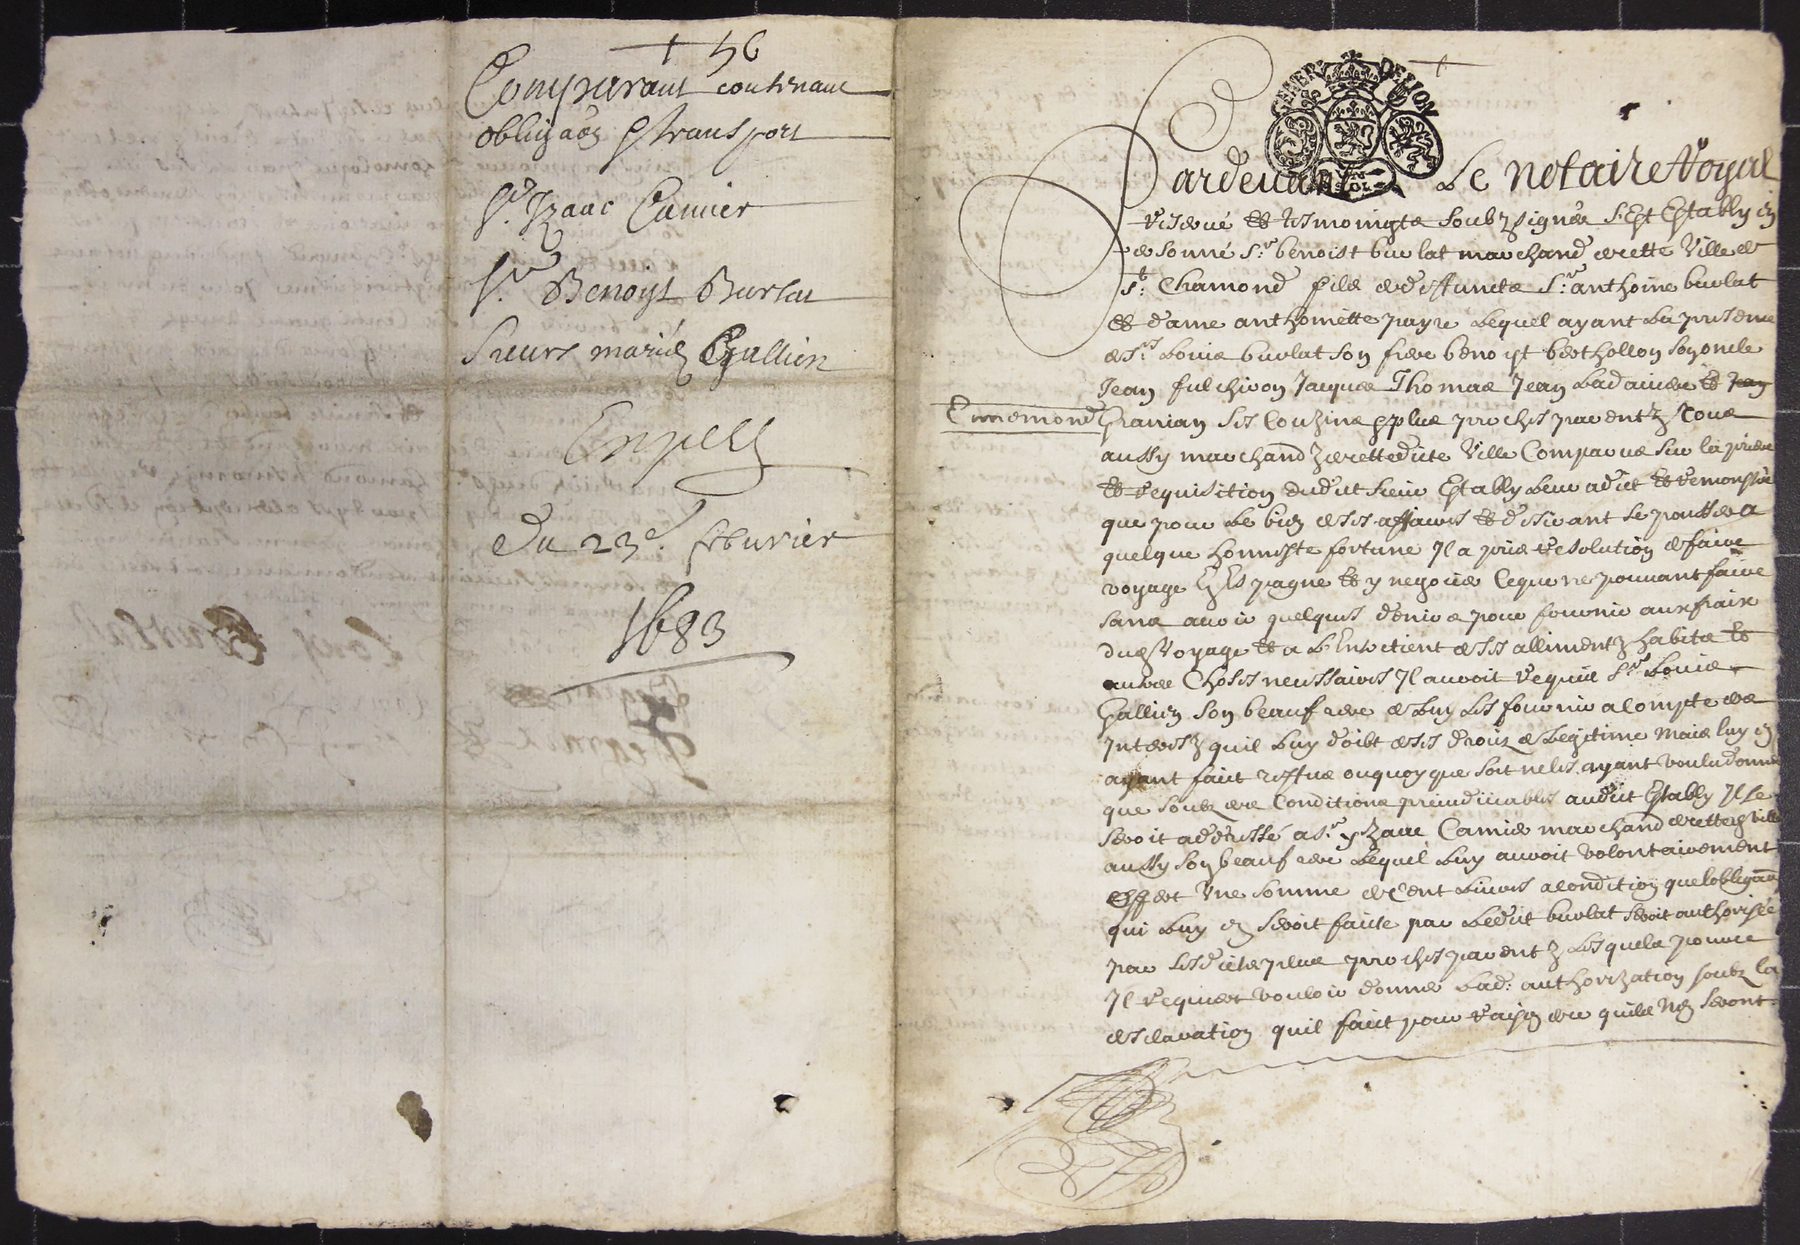 + 56
Comparant contenant
obligaōn & transport
Sr. Izaac Camier
Sr. Benoist Burlat
Sieurs mariés Gallien
Expedié
Du 23e. feburier
1683
GENER. DE LION
UN SOL
Pardevant Le notaire Royal
reservé et tesmoingts soubzsignés s'est estably en
personne Sr. benoist burlat marchand de cette Ville de
St. Chamond filz de deffuncts Sr. anthoine burlat
et dame anthoinette payre Lequel ayant La presence
de Srs. Louis burlat son frere benoist berthollon son oncle
Jean fulchiron Jacques Thomas Jean Badaivier et Jean
Ennemond Granjan ses Couzins & plus proches parentz Tous
aussy marchandz de cettedite Ville Comparus sur la priere
et requisition dudit sieur Estably Leur a dit et remonstré
que pour Le bien de ses affaires et desirant se pousser a
quelque honneste fortune Il a pris resolution de faire
voyage En Espagne et y negocier Ceque ne pouvant faire
sans avoir quelques deniers pour fournir aux fraix
dud Voyage et a L'Entretient de ses allimentz habitz et
autres Choses necessaires Il auroit requis Sr. Louis
Gallien son beaufrere de Luy Les fournir a Compte des
Interestz quil Luy doibt de ses droitz de Legitime Mais luy en
ayant fait reffus ouquoy que soit ne les ayant voulu donner
que soubz des Conditions prejudiciables audit Estably Il se
seroit addressé a Sr. yzaac Camier marchand de cetted ville
aussy son beaufrere Lequel Luy auroit volontairement
offert Une somme de Cent Livres a condition que lobligaōn
qui Luy en seroit faite par Ledit burlat seroit authorisée
par Lesdicts plus proches parentz Lesquels pource
Il requiert vouloir donner Lad: authorization soubz la
desclaration quil fait pour raison de ce quils N'en seront